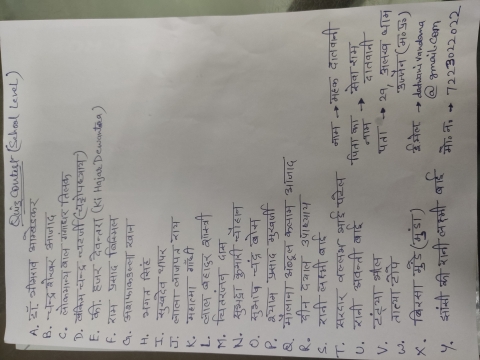 Quiz Contest (School Level)
A. डॉ. भीमराव आम्बेडकर
B. चन्द्र शेखर आजाद
C. लोकमान्य बाल गंगाधर तिलक
D. बंकिम चन्द्र चटर्जी
E. की. हजर देवन्तरा (Ki Hajar Dewantara)
F. राम प्रसाद बिस्मिल
G. अशफाकउल्ला खान
H. भगत सिंह
I. सुखदेव थापर
J. लाला लाजपत राय
K. महात्मा गाँधी
L. लाल बहादुर शास्त्री
M. चितरंजन दास
N. सुभद्रा कुमारी चौहान
O. सुभाष चंद्र बोस
P. श्यामा प्रसाद मुखर्जी
Q. मौलाना अब्दुल कलाम आजाद
R. दीन दयाल उपाध्याय
S. रानी लक्ष्मी बाई
T. सरदार वल्लभ भाई पटेल
U. रानी अवन्ती बाई
V. टंट्या भील
W. तात्या टोपे
X. बिरसा मुंडे (मुंडा)
Y. झाँसी की रानी लक्ष्मी बाई
नाम → महक दातवानी
पिता का नाम → सेवाराम दातवानी
पता → 29, अलख धाम
उज्जैन (म.प्र.)
ईमेल →
@gmail.com
मो. न. → 7223022022